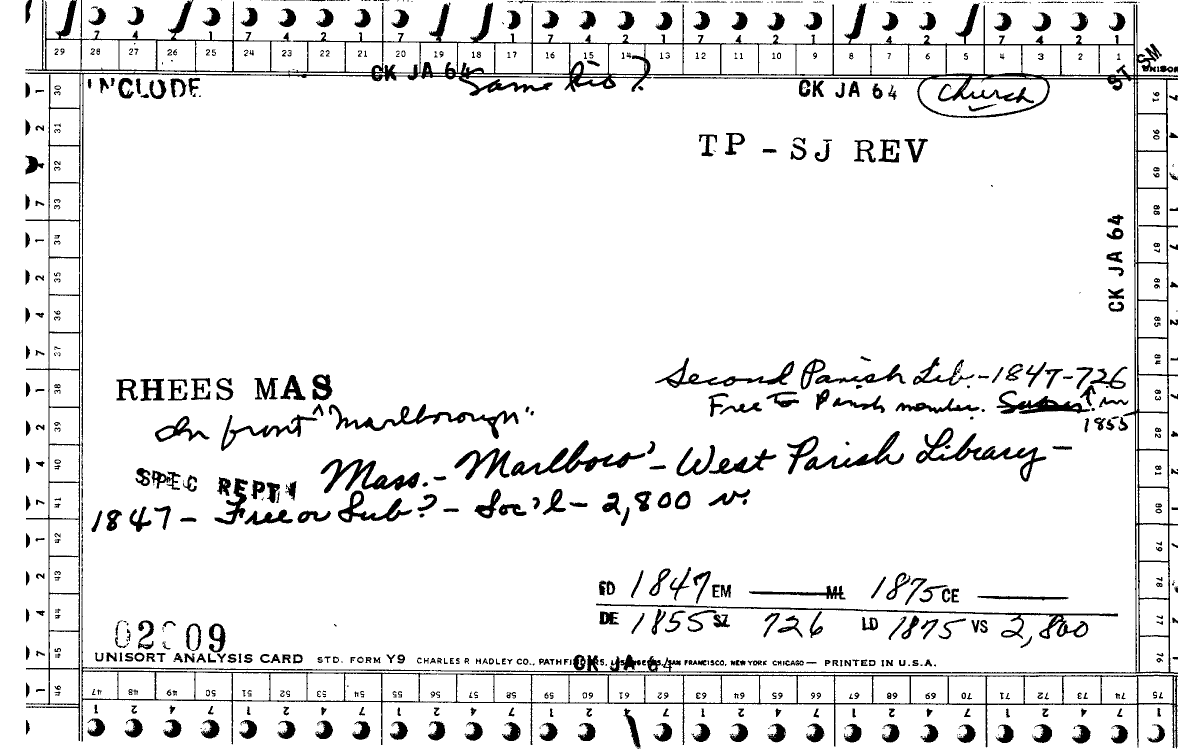 7 4 2 1 7 4 2 1 7 4 2 1 7 4 2 1 7 4 2 1 7 4 2 1 7 4 2 1
29 28 27 26 25 24 23 22 21 20 19 18 17 16 15 14 13 12 11 10 9 8 7 6 5 4 3 2 1
INCLUDE CK JA 64 Same bio? CK JA 64 Church ST SM
TP - SJ REV
CK JA 64
RHEES MAS
Second Parish Lib. - 1847 - 726
In front "Marlborough"
Free to Parish member. in
1855
SPEC REPT Mass. - Marlboro' - West Parish Library -
1847 - Free or Sub? - Soc'l - 2,800 v.
FD 1847 EM ML 1875 CE
DE 1855 SZ 726 LD 1875 VS 2,800
02 09
UNISORT ANALYSIS CARD STD. FORM Y9 CHARLES R HADLEY CO., PATHFINDERS, LOS ANGELES, SAN FRANCISCO, NEW YORK CHICAGO — PRINTED IN U.S.A.
CK JA 64
30 31 32 33 34 35 36 37 38 39 40 41 42 43 44 45 46
91 90 89 88 87 86 85 84 83 82 81 80 79 78 77 76 75
47 48 49 50 51 52 53 54 55 56 57 58 59 60 61 62 63 64 65 66 67 68 69 70 71 72 73 74
1 2 4 7 1 2 4 7 1 2 4 7 1 2 4 7 1 2 4 7 1 2 4 7 1 2 4 7